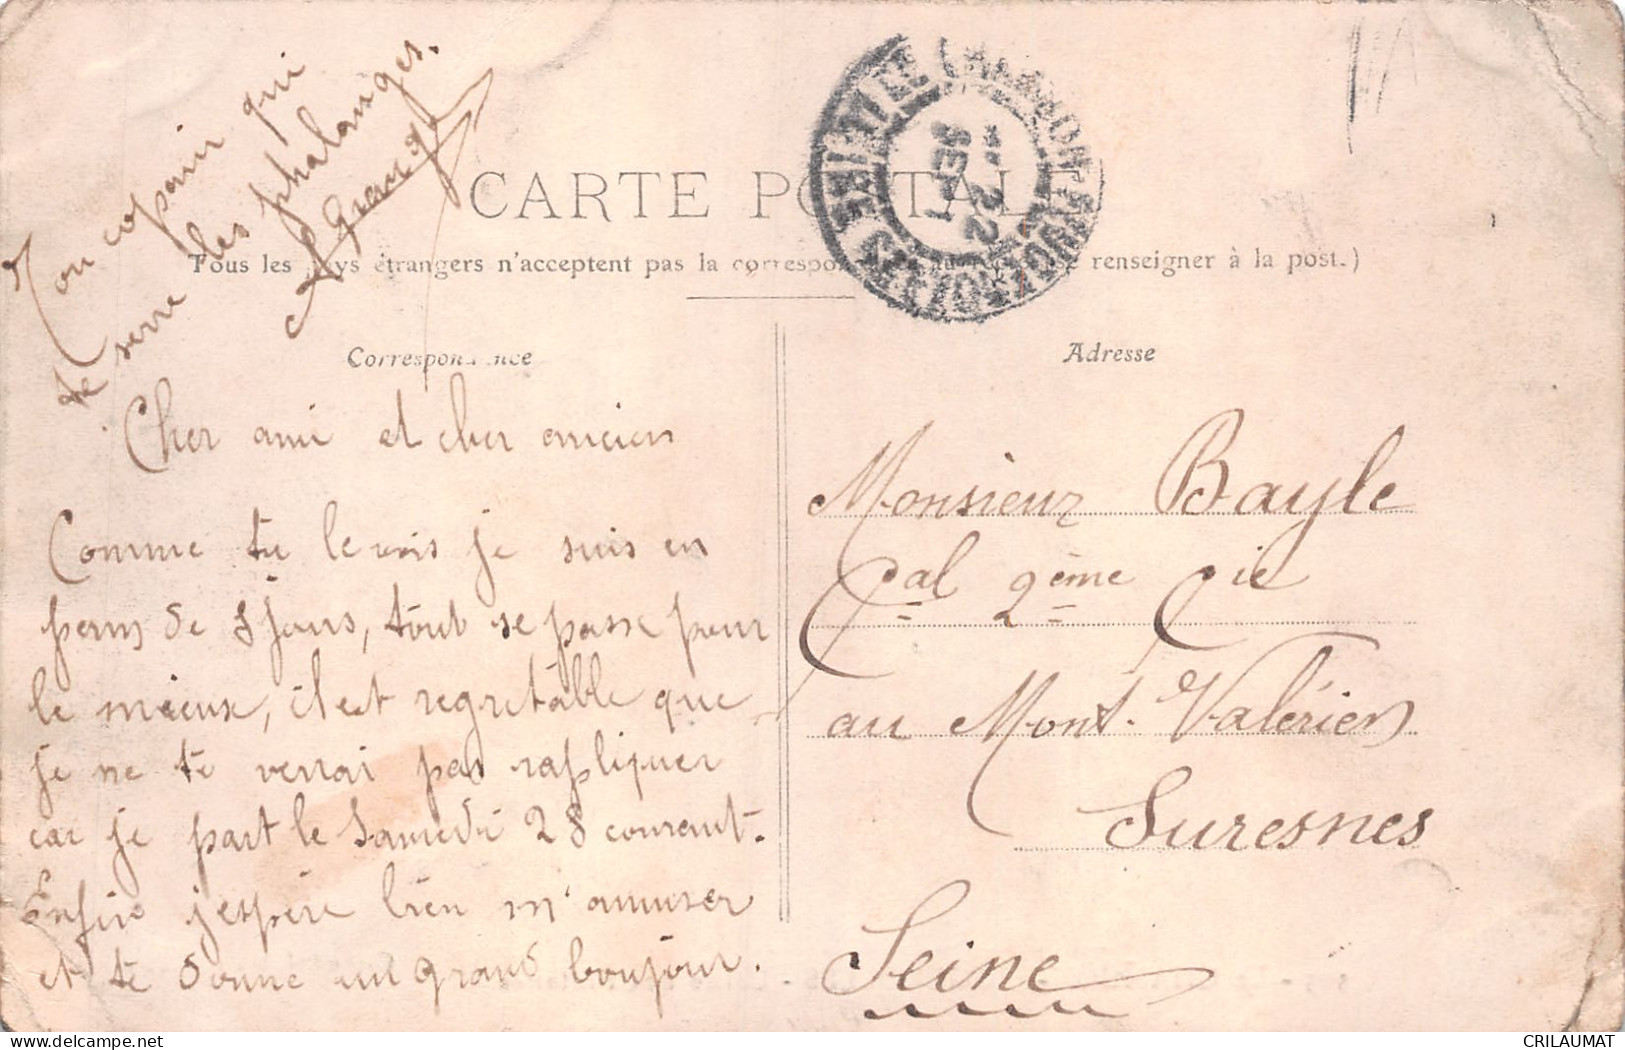 CARTE POSTALE
Tous les pays étrangers n'acceptent pas la correspon renseigner à la post.)
Correspondance
Adresse
Cher ami et cher ancien
Comme tu le vois je suis en
perm de 8 jours, tout se passe pour
le mieux, il est regretable que
je ne te verrai pas rapliquer
car je part le Samedi 28 courant.
Enfin j'espère bien m'amuser
et te donne un grand bonjour.
Ton copain qui
te serre les phalanges.
Monsieur Bayle
Cal 2ème Cie
au Mont-Valérien
Suresnes
Seine
22
SEPT
CRILAUMAT